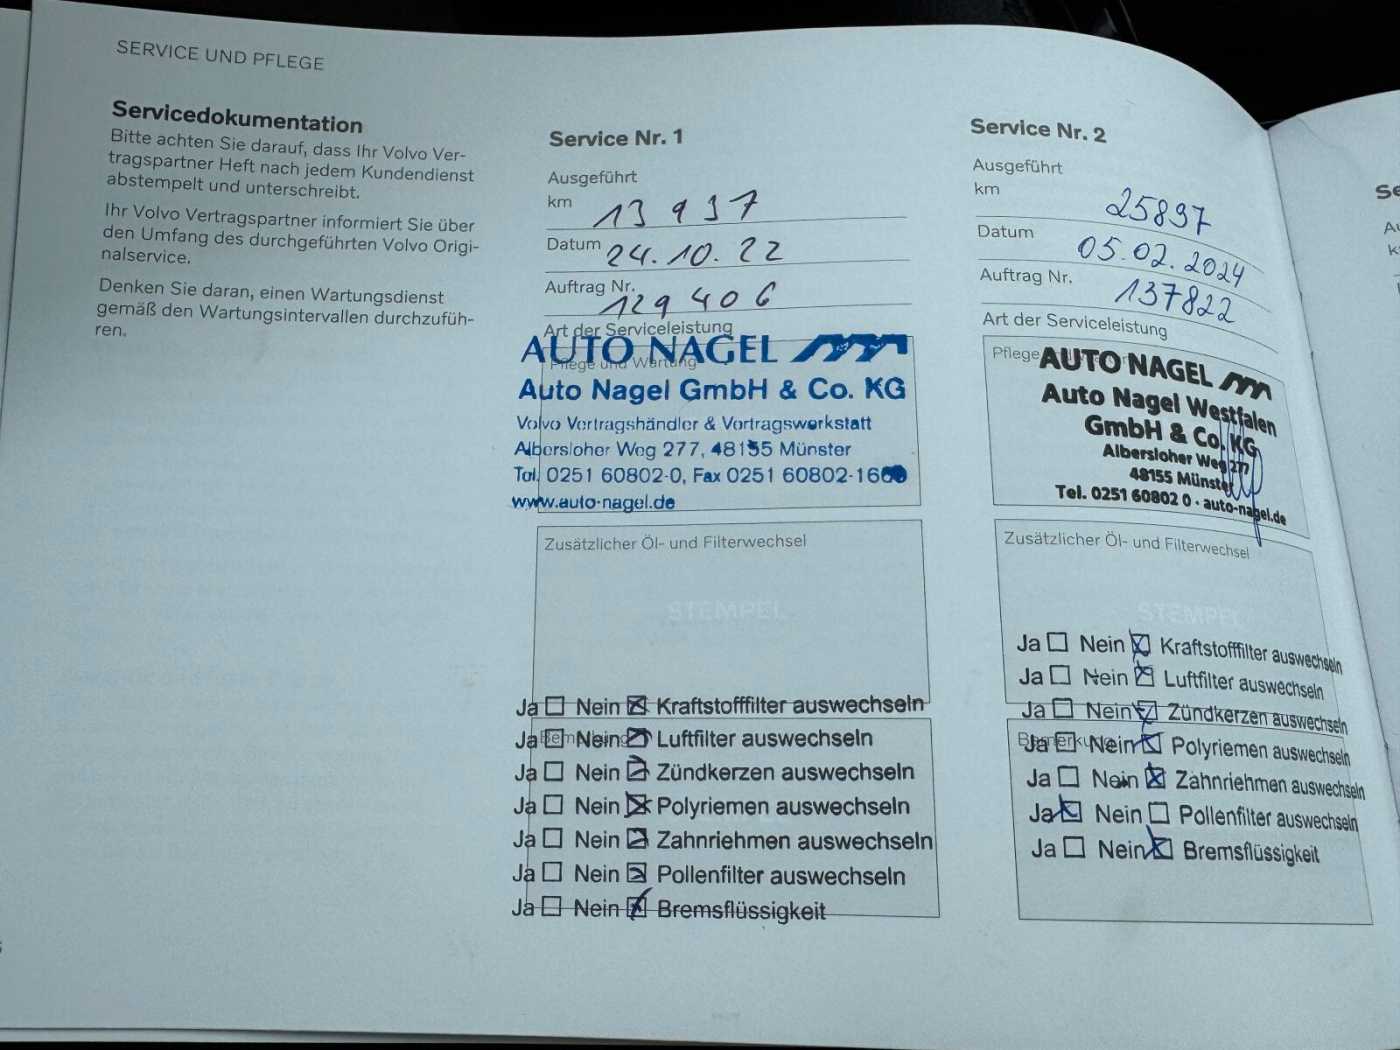 SERVICE UND PFLEGE
Servicedokumentation
Bitte achten Sie darauf, dass Ihr Volvo Ver-
tragspartner Heft nach jedem Kundendienst
abstempelt und unterschreibt.
Ihr Volvo Vertragspartner informiert Sie über
den Umfang des durchgeführten Volvo Origi-
nalservice.
Denken Sie daran, einen Wartungsdienst
gemäß den Wartungsintervallen durchzufüh-
ren.
Service Nr. 1
Ausgeführt
km 13 937
Datum 24.10.22
Auftrag Nr. 129406
Art der Serviceleistung
Pflege und Wartung
AUTO NAGEL
Auto Nagel GmbH & Co. KG
Volvo Vertragshändler & Vertragswerkstatt
Albersloher Weg 277, 48155 Münster
Tel. 0251 60802-0, Fax 0251 60802-160
www.auto-nagel.de
Zusätzlicher Öl- und Filterwechsel
STEMPEL
Ja Nein Kraftstofffilter auswechseln
Ja Nein Luftfilter auswechseln
Ja Nein Zündkerzen auswechseln
Ja Nein Polyriemen auswechseln
Ja Nein Zahnriehmen auswechseln
Ja Nein Pollenfilter auswechseln
Ja Nein Bremsflüssigkeit
Service Nr. 2
Ausgeführt
km 25897
Datum 05.02.2024
Auftrag Nr. 137822
Art der Serviceleistung
Pflege
AUTO NAGEL
Auto Nagel Westfalen
GmbH & Co. KG
Albersloher Weg 277
48155 Münster
Tel. 0251 60802 0 · auto-nagel.de
Zusätzlicher Öl- und Filterwechsel
STEMPEL
Ja Nein Kraftstofffilter auswechseln
Ja Nein Luftfilter auswechseln
Ja Nein Zündkerzen auswechseln
Bemerkung
Ja Nein Polyriemen auswechseln
Ja Nein Zahnriehmen auswechseln
Ja Nein Pollenfilter auswechseln
Ja Nein Bremsflüssigkeit